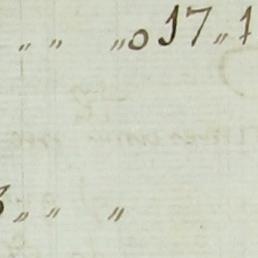 " " " 0 17 " 1
3 " " "